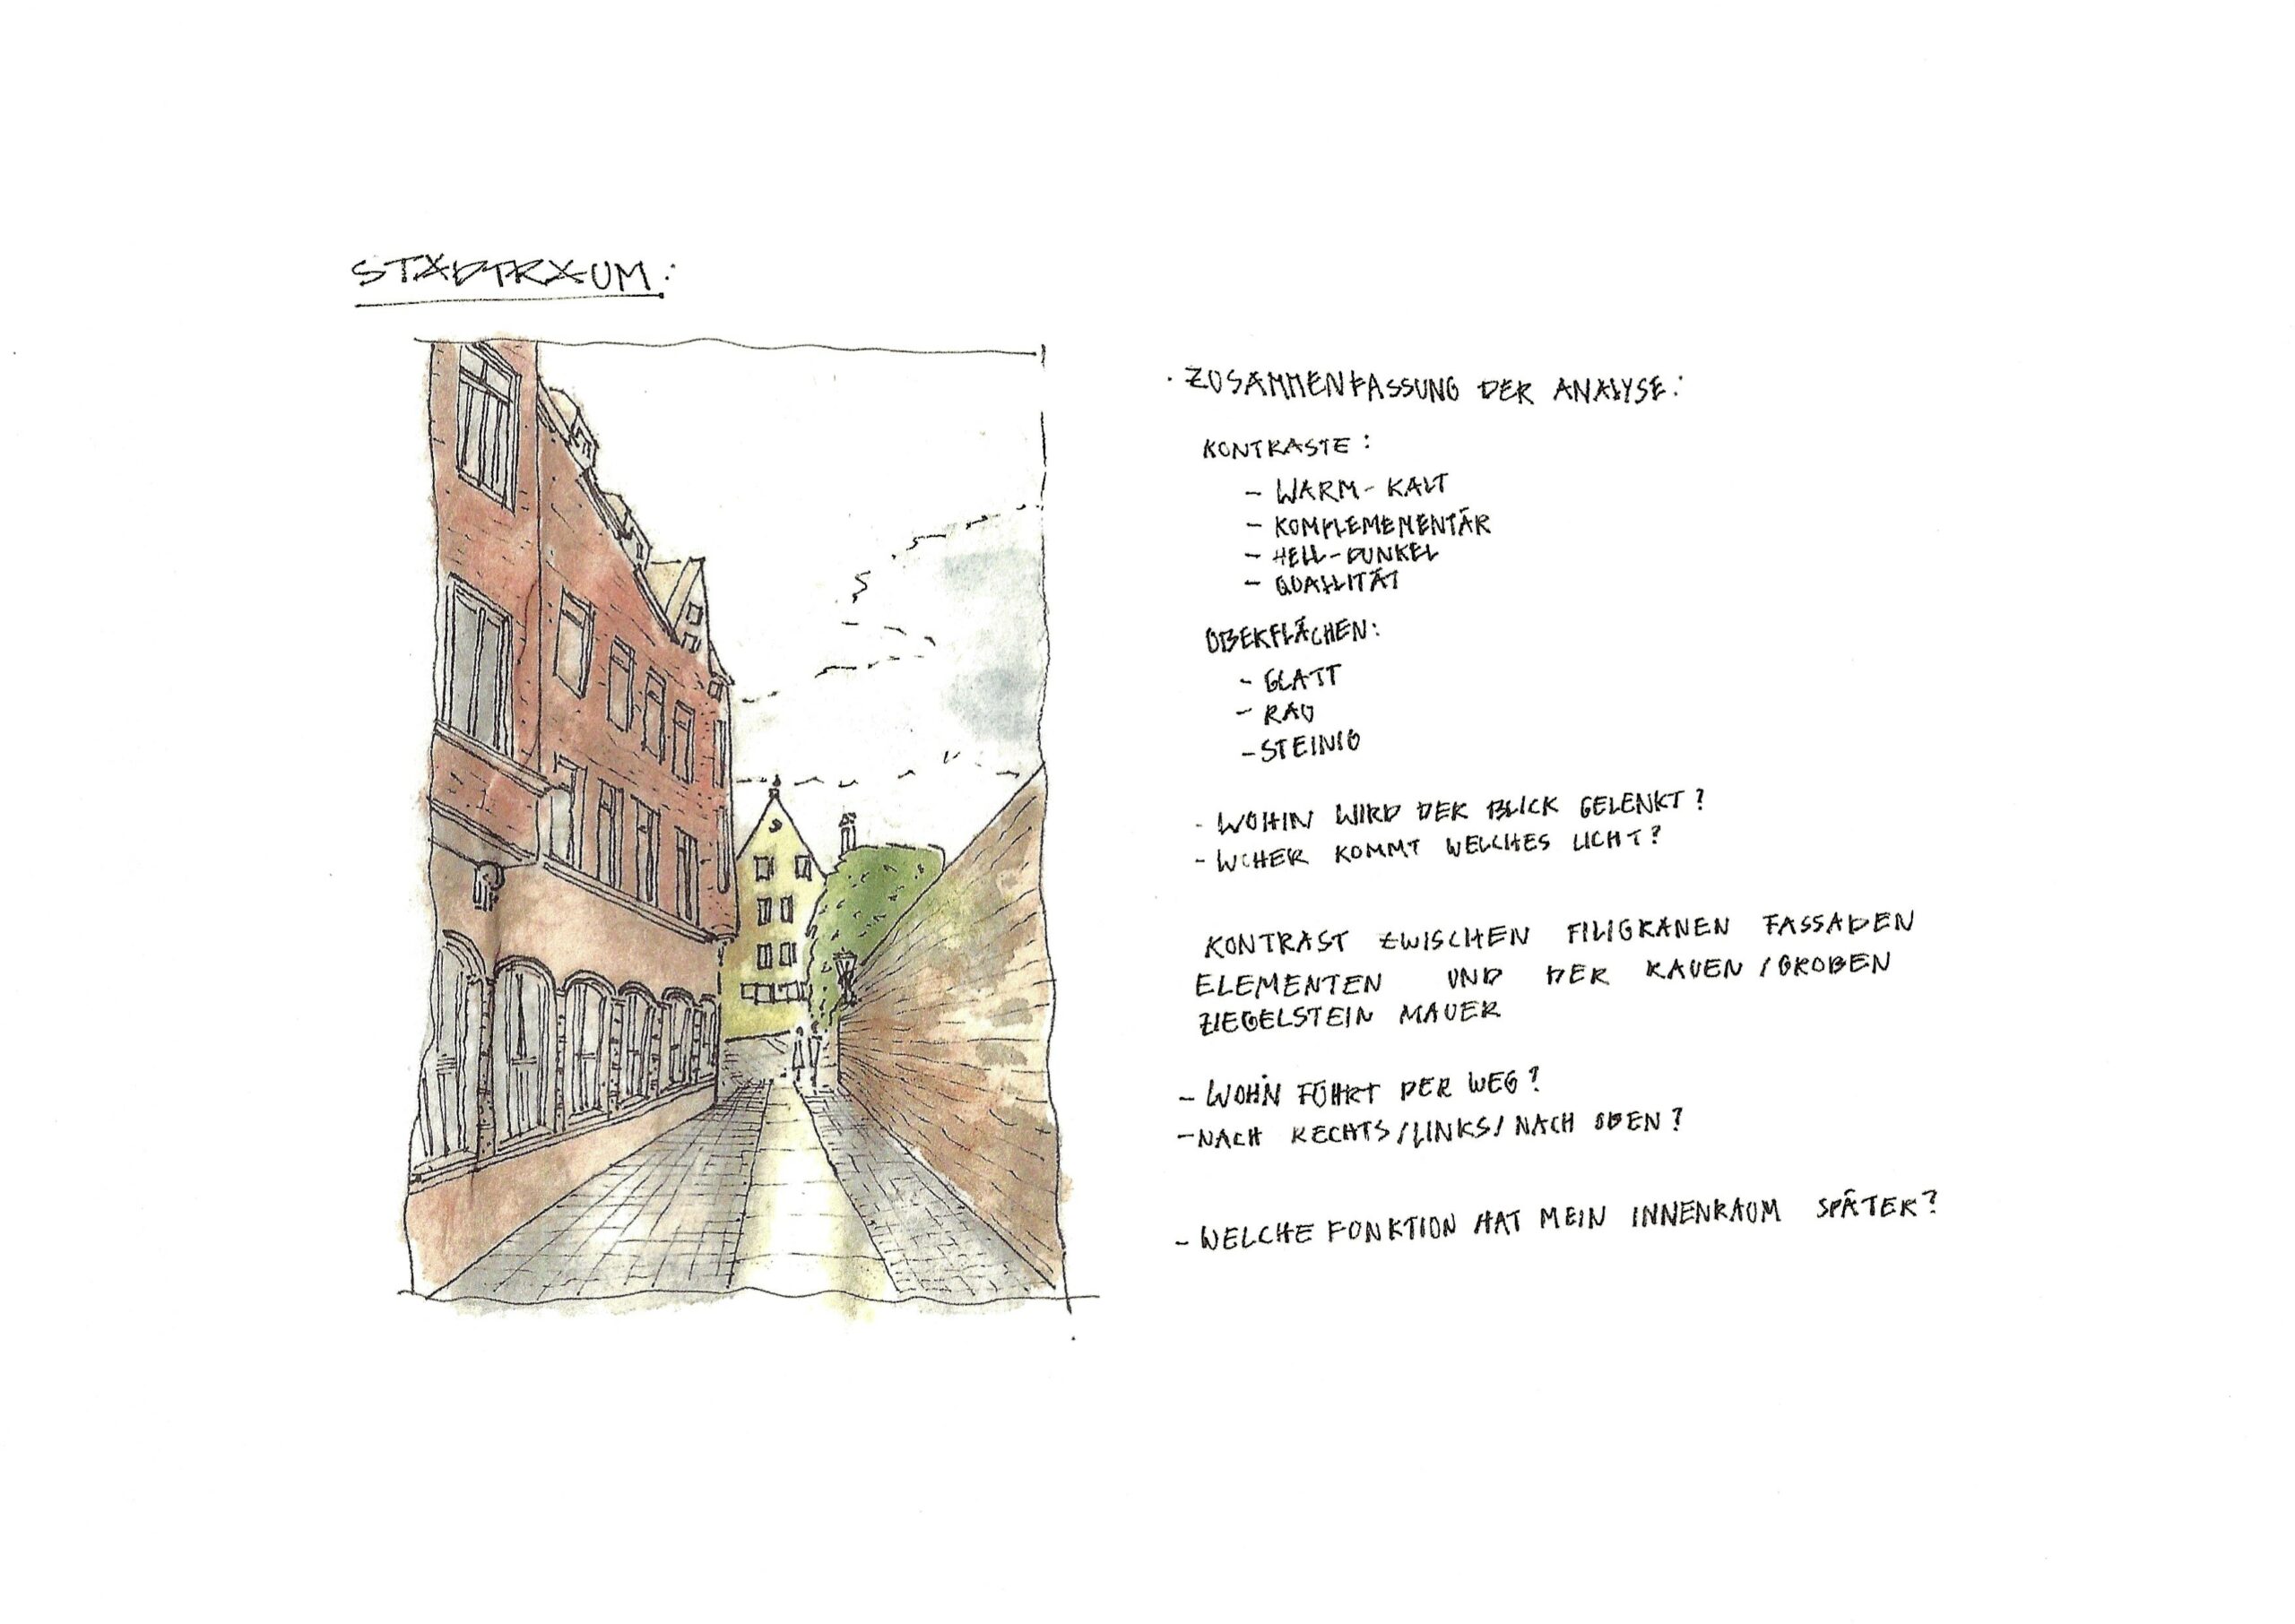 STADTRAUM:
· ZUSAMMENFASSUNG DER ANALYSE:
KONTRASTE:
- WARM - KALT
- KOMPLEMEMENTÄR
- HELL - DUNKEL
- QUALLITÄT
OBERFLÄCHEN:
- GLATT
- RAU
- STEINIG
- WOHIN WIRD DER BLICK GELENKT?
- WOHER KOMMT WELCHES LICHT?
KONTRAST ZWISCHEN FILIGRANEN FASSADEN
ELEMENTEN UND DER RAUEN / GROBEN
ZIEGELSTEIN MAUER
- WOHIN FÜHRT DER WEG?
- NACH RECHTS / LINKS / NACH OBEN?
- WELCHE FUNKTION HAT MEIN INNENRAUM SPÄTER?